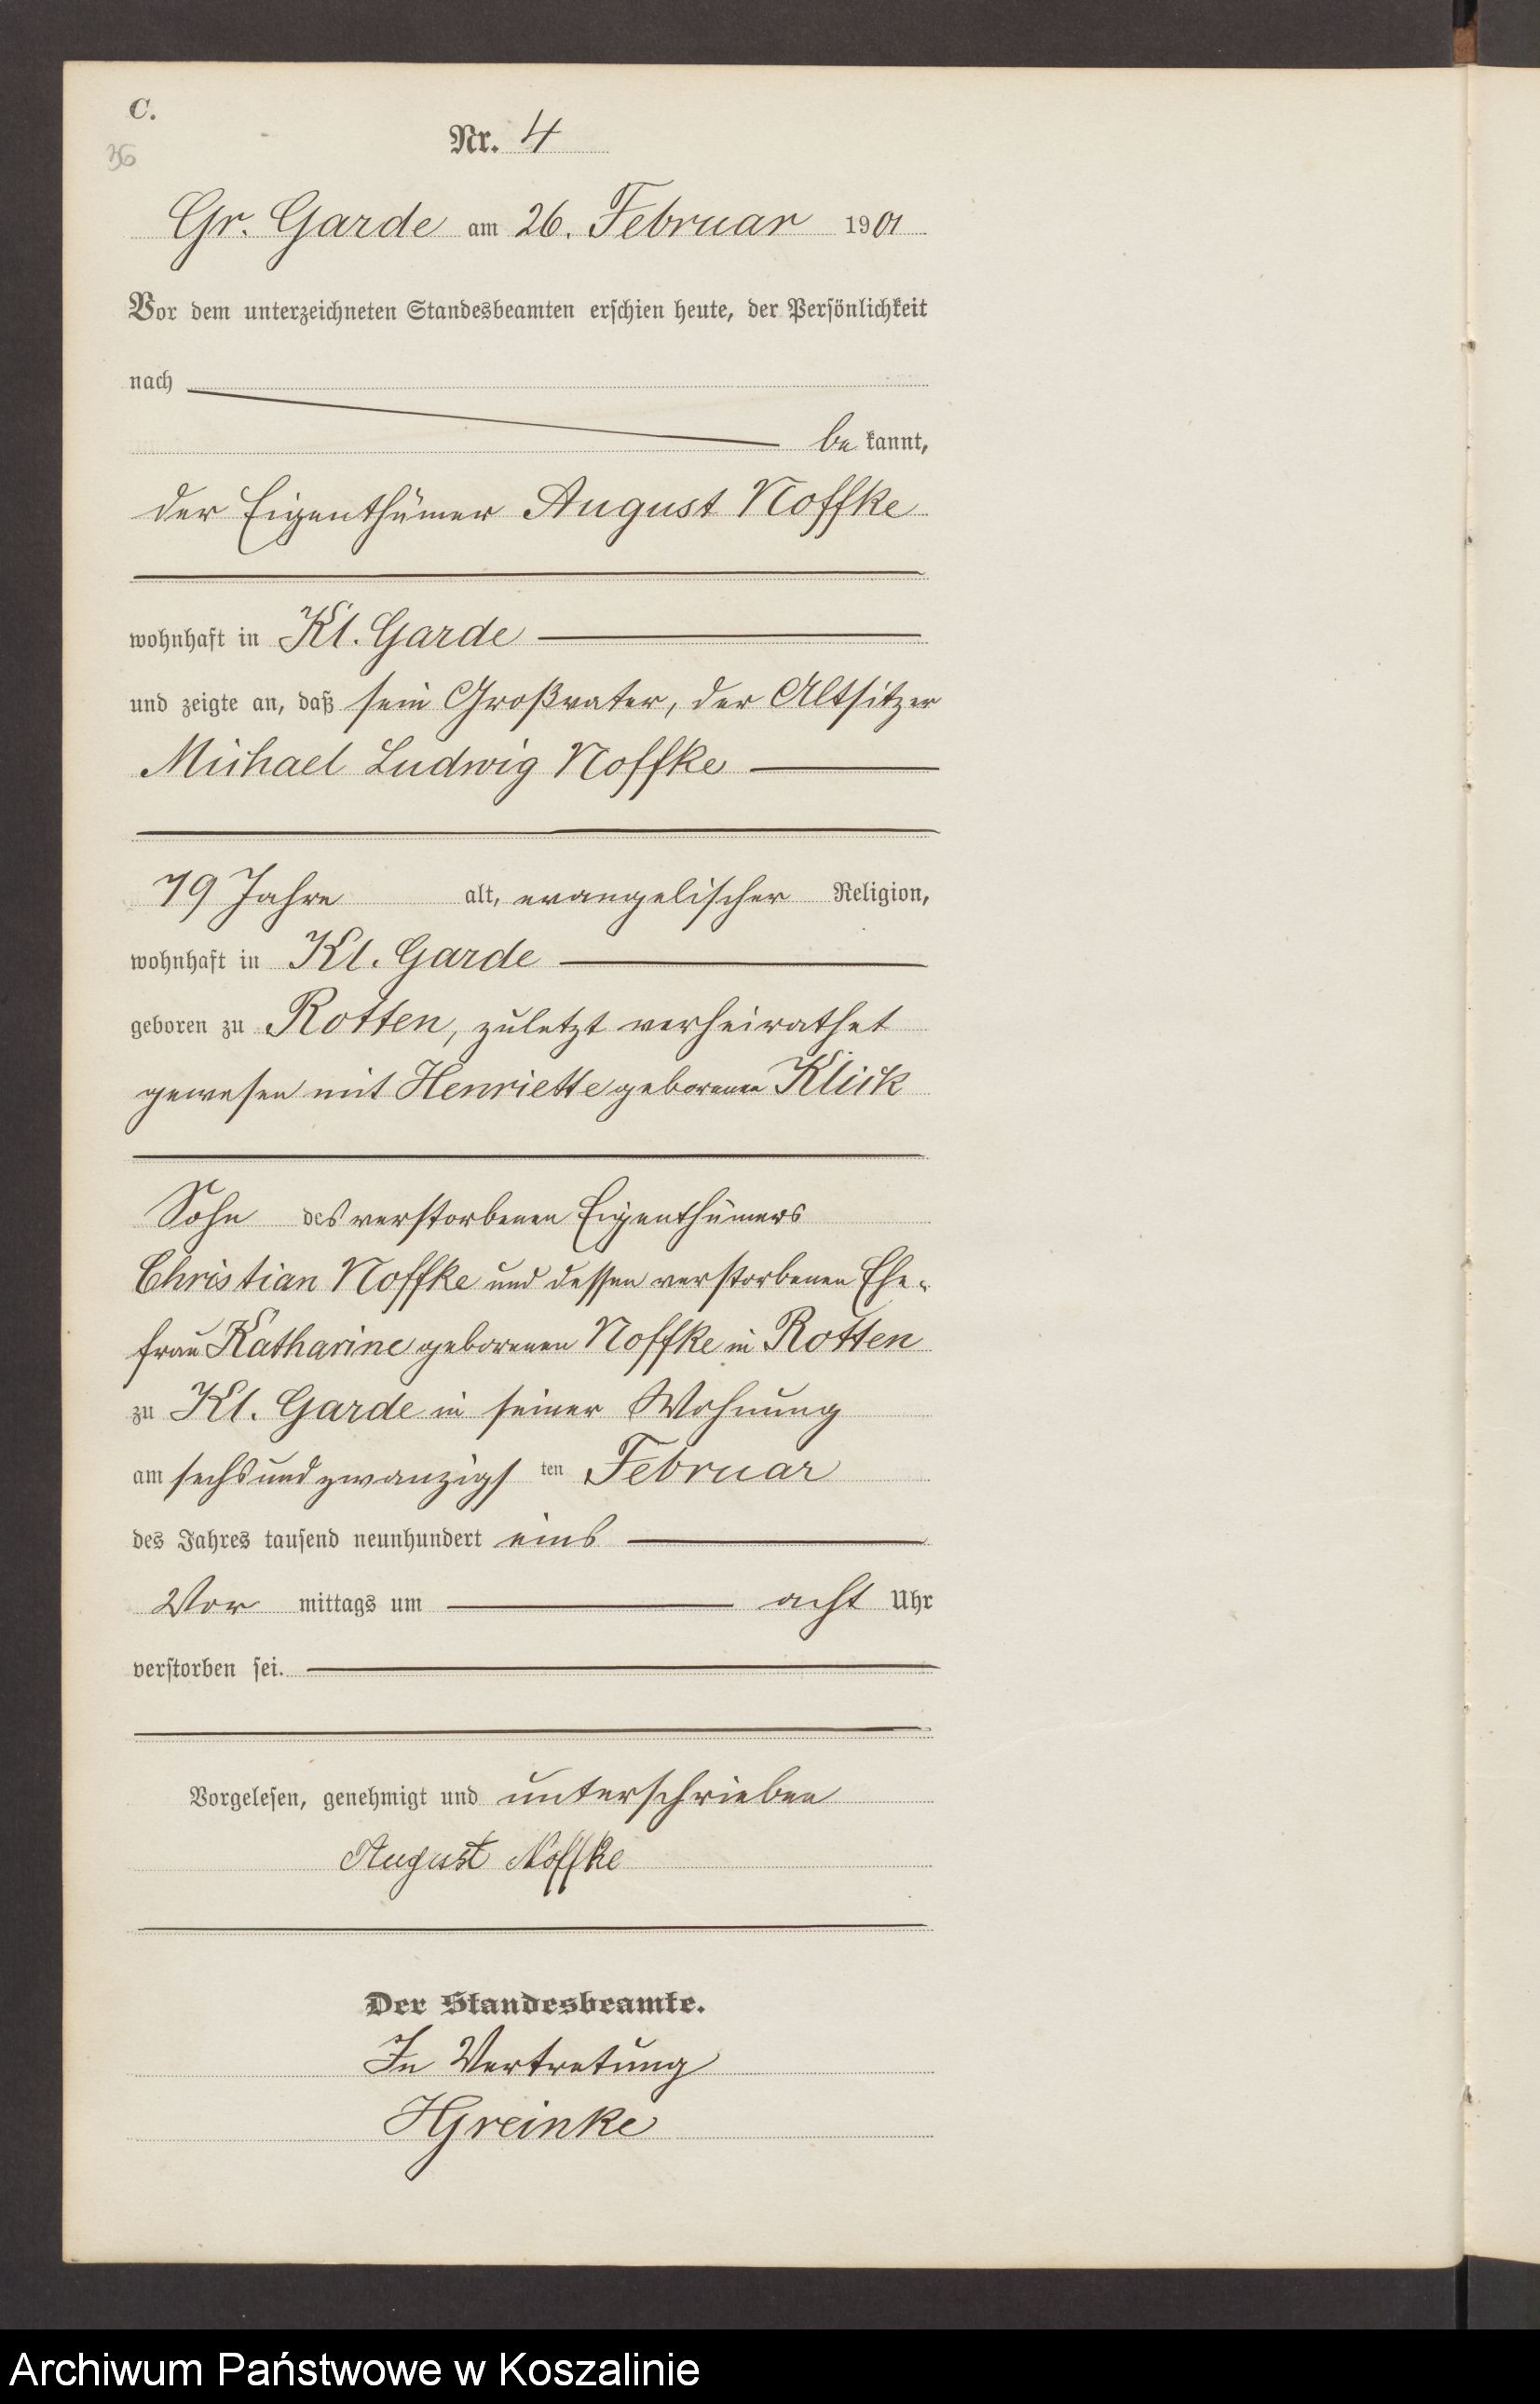 C.
36
Nr. 4
Gr. Garde am 26. Februar 1901
Vor dem unterzeichneten Standesbeamten erschien heute, der Persönlichkeit
nach
be kannt,
der Eigenthümer August Noffke
wohnhaft in Kl. Garde
und zeigte an, daß sein Großvater, der Altsitzer
Michael Ludwig Noffke
79 Jahre alt, evangelischer Religion,
wohnhaft in Kl. Garde
geboren zu Rotten, zuletzt verheirathet
gewesen mit Henriette geborenen Klick
Sohn des verstorbenen Eigenthümers
Christian Noffke und dessen verstorbenen Ehe-
frau Katharine geborenen Noffke in Rotten
zu Kl. Garde in seiner Wohnung
am sechsundzwanzigsten Februar
des Jahres tausend neunhundert eins
Vor mittags um acht Uhr
verstorben sei.
Vorgelesen, genehmigt und unterschrieben
August Noffke
Der Standesbeamte.
In Vertretung
HGreinke
Archiwum Państwowe w Koszalinie